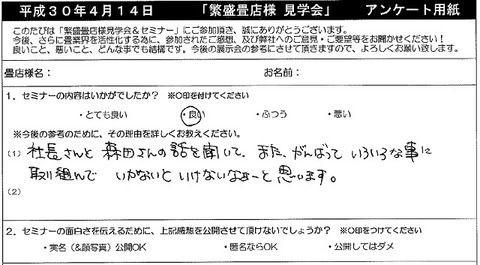 平成３０年４月１４日　「繁盛畳店様 見学会」　アンケート用紙
このたびは「繁盛畳店様見学会＆セミナー」にご参加頂き、誠にありがとうございます。
今後、さらに畳業界を活性化する為に、参加されたご感想、及び弊社へのご意見・ご要望等をお聞かせください！
良いこと、悪いこと、どんな事でも結構です。今後の展示会の参考にさせて頂きますので、よろしくお願い致します。
畳店様名：　お名前：
１．セミナーの内容はいかがでしたか？ ※○印を付けてください
・とても良い　・良い　・ふつう　・悪い
※今後の参考のために、その理由を詳しくお教えください。
(1) 社長さんと森田さんの話を聞いて、また、がんばっていろいろな事に
取り組んでいかないといけないなぁーと思います。
(2)
２．セミナーの面白さを伝えるために、上記感想を公開させて頂けないでしょうか？ ※○印をつけてください
・実名（&顔写真）公開OK　・匿名ならOK　・公開してはダメ